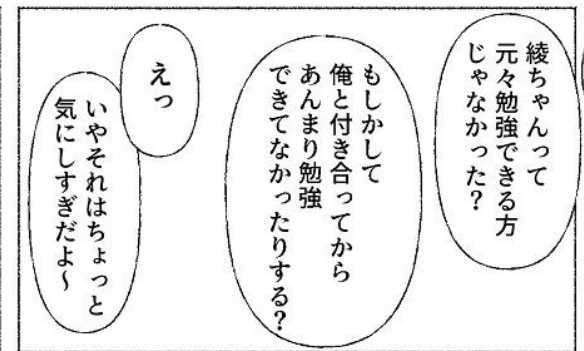 綾ちゃんって
元々勉強できる方
じゃなかった？
もしかして
俺と付き合ってから
あんまり勉強
できてなかったりする？
えっ
いやそれはちょっと
気にしすぎだよ〜